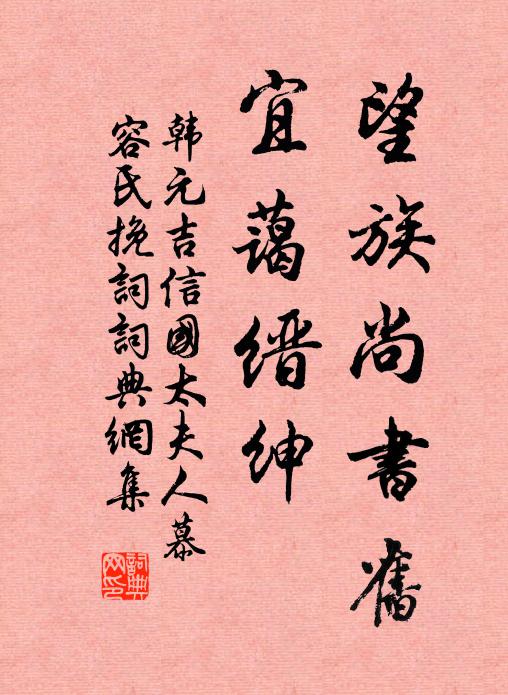 望族尚書舊
宜蔼缙绅
韩元吉信國太夫人慕
容氏挽詞詞典網集
詞典
网印